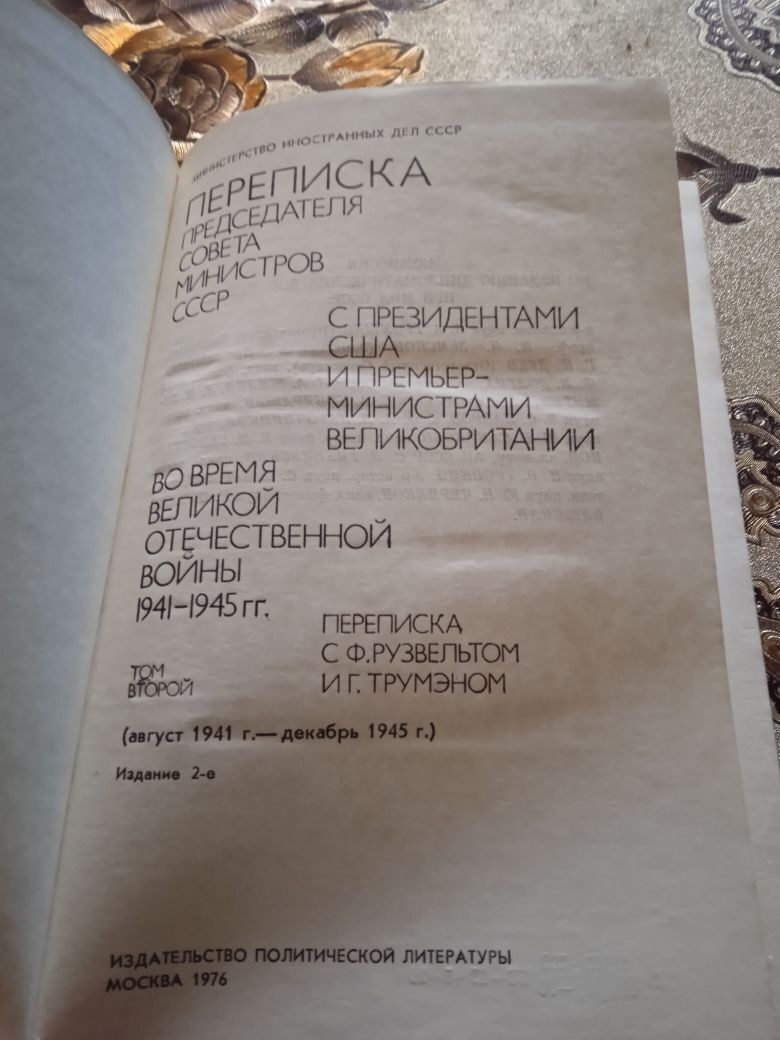 МИНИСТЕРСТВО ИНОСТРАННЫХ ДЕЛ СССР
ПЕРЕПИСКА
ПРЕДСЕДАТЕЛЯ
СОВЕТА
МИНИСТРОВ
СССР
С ПРЕЗИДЕНТАМИ
США
И ПРЕМЬЕР-
МИНИСТРАМИ
ВЕЛИКОБРИТАНИИ
ВО ВРЕМЯ
ВЕЛИКОЙ
ОТЕЧЕСТВЕННОЙ
ВОЙНЫ
1941-1945 гг.
ТОМ
ВТОРОЙ
ПЕРЕПИСКА
С Ф.РУЗВЕЛЬТОМ
И Г. ТРУМЭНОМ
(август 1941 г.—декабрь 1945 г.)
Издание 2-е
ИЗДАТЕЛЬСТВО ПОЛИТИЧЕСКОЙ ЛИТЕРАТУРЫ
МОСКВА 1976